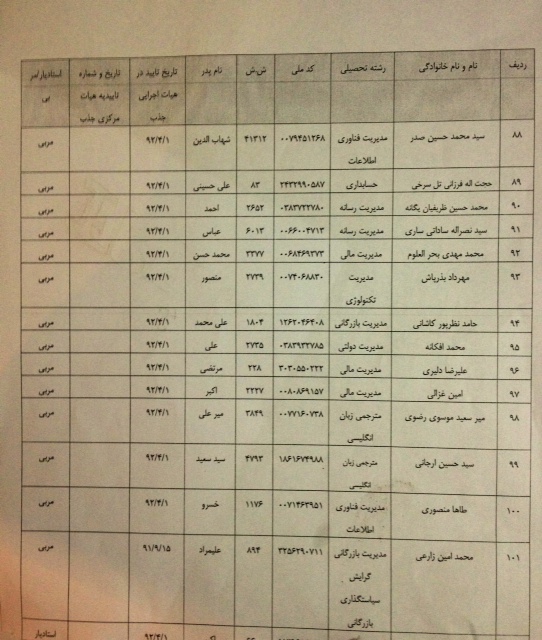 ردیف نام و نام خانوادگی رشته تحصیلی کد ملی ش.ش نام پدر تاریخ تایید در هیات اجرایی جذب تاریخ و شماره تاییدیه هیات مرکزی جذب استادیار/مربی
۸۸ سید محمد حسین صدر مدیریت فناوری اطلاعات ۰۰۷۹۴۵۱۲۶۸ ۴۱۳۱۲ شهاب الدین ۹۲/۴/۱ مربی
۸۹ حجت اله فرزانی تل سرخی حسابداری ۲۴۳۲۹۹۰۵۸۷ ۸۳ علی حسینی ۹۲/۴/۱ مربی
۹۰ محمد حسین ظریفیان یگانه مدیریت رسانه ۰۳۸۳۷۲۲۷۸۰ ۲۶۵۲ احمد ۹۲/۴/۱ مربی
۹۱ سید نصراله ساداتی ساری مدیریت رسانه ۰۰۶۶۰۰۴۷۱۳ ۶۰۱۳ عباس ۹۲/۴/۱ مربی
۹۲ محمد مهدی بحر العلوم مدیریت مالی ۰۰۶۸۴۶۹۳۷۳ ۳۳۷۷ محمد حسن ۹۲/۴/۱ مربی
۹۳ مهرداد بذرپاش مدیریت تکنولوژی ۰۰۷۴۰۶۸۸۳۰ ۲۷۳۹ منصور ۹۲/۴/۱ مربی
۹۴ حامد نظرپور کاشانی مدیریت بازرگانی ۱۲۶۲۰۴۶۴۰۸ ۱۸۰۴ علی محمد ۹۲/۴/۱ مربی
۹۵ محمد افکانه مدیریت دولتی ۰۳۸۳۹۳۲۷۸۵ ۲۷۳۵ علی ۹۲/۴/۱ مربی
۹۶ علیرضا دلیری مدیریت مالی ۳۰۳۰۵۵۰۲۲۲ ۲۲۸ مرتضی ۹۲/۴/۱ مربی
۹۷ امین غزالی مدیریت مالی ۰۰۸۰۸۶۹۱۵۷ ۲۲۲۷ اکبر ۹۲/۴/۱ مربی
۹۸ میر سعید موسوی رضوی مترجمی زبان انگلیسی ۰۰۷۷۱۶۰۷۳۸ ۳۸۴۹ میر علی ۹۲/۴/۱ مربی
۹۹ سید حسین ارجانی مترجمی زبان انگلیسی ۱۸۶۱۶۷۴۹۸۸ ۴۷۹۳ سید سعید ۹۲/۴/۱ مربی
۱۰۰ طاها منصوری مدیریت فناوری اطلاعات ۰۰۷۱۴۶۳۹۵۱ ۱۱۷۶ خسرو ۹۲/۴/۱ مربی
۱۰۱ محمد امین زارعی مدیریت بازرگانی گرایش سیاستگذاری بازرگانی ۳۲۵۶۲۹۰۷۱۱ ۸۹۴ علیمراد ۹۱/۹/۱۵ مربی
۹۲/۴/۱ استادیار